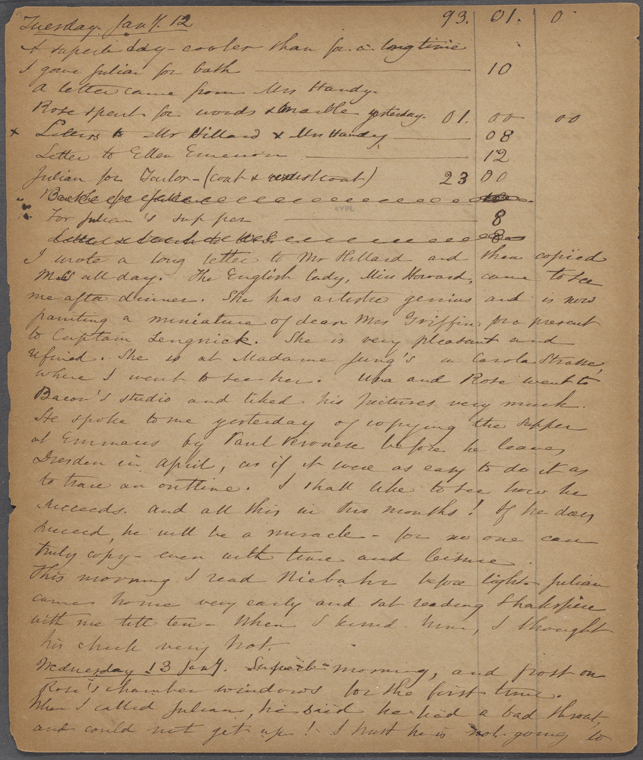 Tuesday Jany. 12 93. 01. 0
A superb day - cooler than for a long time
I gave Julian for bath 10
A letter came from Mrs Handy.
Rose spent for words & marble yesterday. 01. 00 00
x Letters to Mr Hillard & Mrs Handy 08
Letter to Ellen Emerson 12
Julian for Tailor - (coat & waistcoat) 23 00
For Julian's supper 8
I wrote a long letter to Mr Hillard and then copied
MSS all day. The English lady, Miss Howard, came to see
me after dinner. She has artistic genius and is now
painting a miniature of dear Mrs Griffin for a present
to Captain Lengnick. She is very pleasant and
refined. She is at Madame Jung's in Carola Strasse,
where I went to see her. Una and Rose went to
Bacon's studio and liked his pictures very much.
He spoke to me yesterday of copying the Supper
at Emmaus by Paul Veronese before he leaves
Dresden in April, as if it were as easy to do it as
to trace an outline. I shall like to see how he
succeeds. And all this in two months! If he does
succeed, he will be a miracle - for no one can
truly copy - even with time and leisure.
This morning I read Niebuhr before light. Julian
came home very early and sat reading Shakspeare
with me till ten. When I kissed him, I thought
his cheek very hot.
Wednesday 13 Jany. Superb morning, and frost on
Rose's chamber windows for the first time.
When I called Julian, he said he had a bad throat,
and could not get up! I trust he is not going to